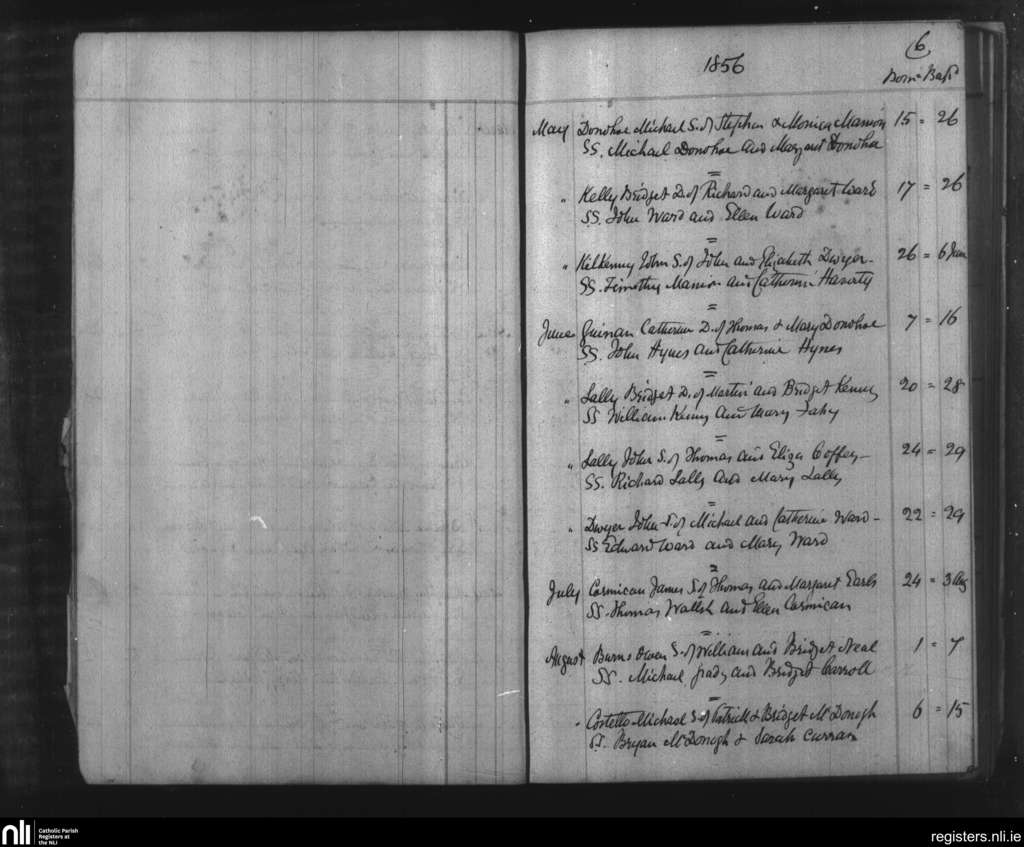 6
1856
Born = Bapd
May Donohoe Michael S. of Stephen & Monica Mannion 15 = 26
SS. Michael Donohoe and Margaret Donohoe
=
" Kelly Bridget D. of Richard and Margaret Ward 17 = 26
SS. John Ward and Ellen Ward
=
" Kilkenny John S. of John and Elizabeth Dwyer - 26 = 6 June
SS. Timothy Mannion and Catherine Haverty
=
June Guinan Catherine D. of Thomas & Mary Donohoe 7 = 16
SS. John Hynes and Catherine Hynes
=
" Lally Bridget D. of Martin and Bridget Kenny 20 = 28
SS William Kenny and Mary Fahy
=
" Lally John S. of Thomas and Eliza Coffey - 24 = 29
SS. Richard Lally and Mary Lally
=
" Dwyer John S. of Michael and Catherine Ward - 22 = 29
SS Edward Ward and Mary Ward
=
July Cormican James S. of Thomas and Margaret Earls 24 = 3 Aug
SS. Thomas Walsh and Ellen Cormican
=
August Burns Owen S. of William and Bridget Neal 1 = 7
SS. Michael Grady and Bridget Carroll
=
" Costello Michael S. of Patrick & Bridget McDonogh 6 = 15
SS. Bryan McDonogh & Sarah Curran
nli
Catholic Parish
Registers at
the NLI
registers.nli.ie